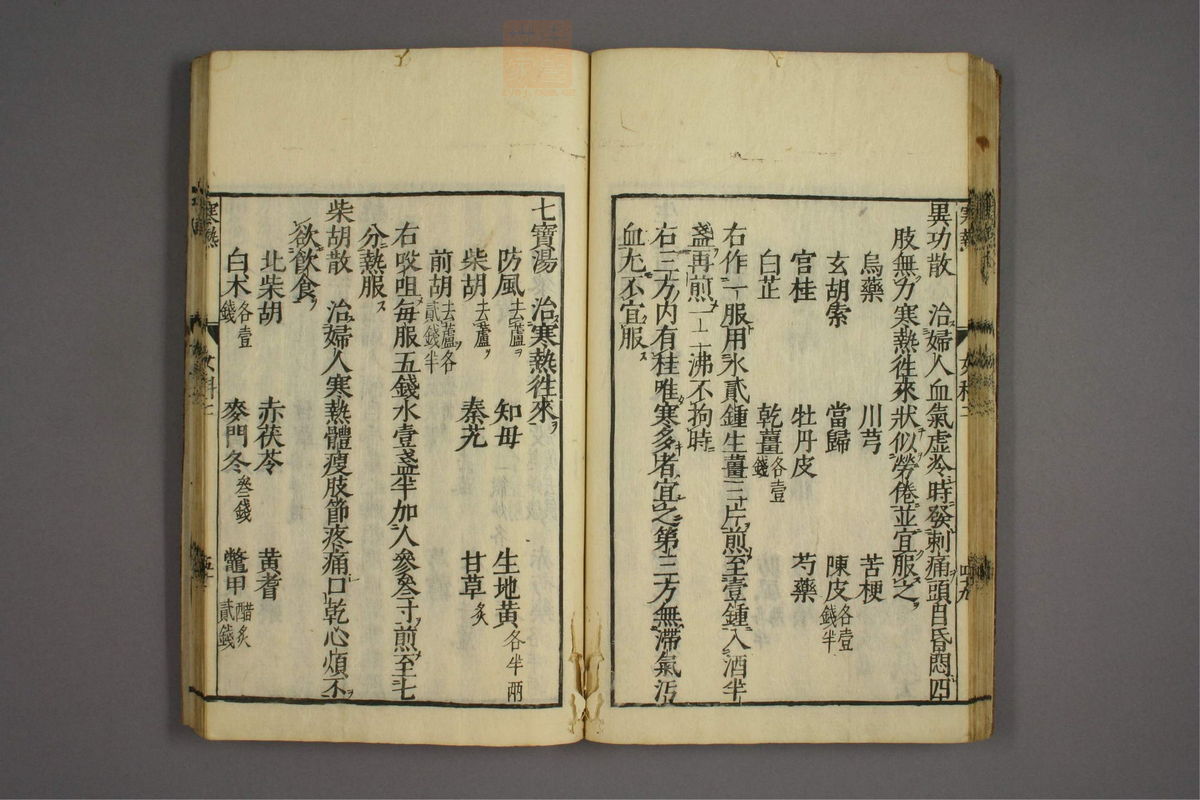 異功散 治婦人血氣虚冷時發刺痛頭目昏悶四
肢無力寒熱徃來狀似勞倦並宜服之
烏藥 川芎 苦梗
玄胡索 當歸 陳皮各壹錢半
官桂 牡丹皮 芍藥
白芷 乾薑各壹錢
右作一服用水貳鍾生薑三片煎至壹鍾入酒半
盞再煎一二沸不拘時
右三方内有桂唯寒多者宜之第三方無滯氣汚
血尤不宜服
七寶湯 治寒熱徃來
防風去蘆 知母 生地黄各半兩
柴胡去蘆 秦艽 甘草炙
前胡去蘆各貳錢半
右㕮咀毎服五錢水壹盞半加人參叁寸煎至七
分熱服
柴胡散 治婦人寒熱體瘦肢節疼痛口乾心煩不
欲飲食
北柴胡 赤茯苓 黄耆
白术各壹錢 麥門冬叁錢 鼈甲醋炙貳錢
寒熱 女科二